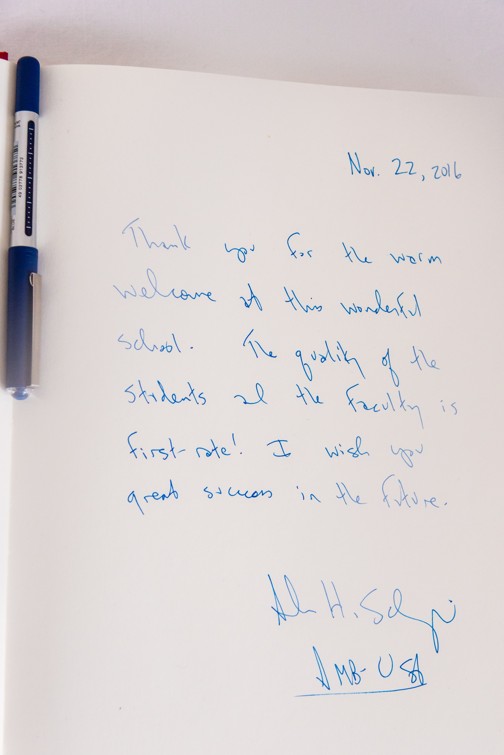 Nov. 22, 2016
Thank you for the warm
welcome at this wonderful
school. The quality of the
students and the faculty is
first-rate! I wish you
great success in the future.
H.
AMB-USA